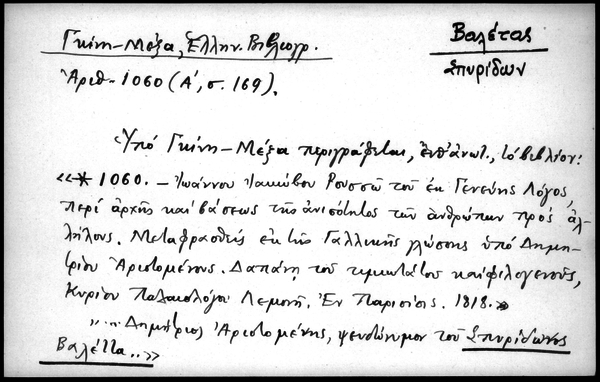 Γκίνη-Μέξα, Ἑλλην. Βιβλιογρ.
Βαλέτας
Σπυρίδων
Ἀριθ. 1060 (Α΄, σ. 169).
Ὑπό Γκίνη-Μέξα περιγράφεται, ἐνθ' ἀνωτ., τό βιβλίον:
«* 1060. - Ἰωάννου Ἰακώβου Ρουσσῶ τοῦ ἐκ Γενεύης Λόγος
περί ἀρχῆς καί βάσεως τῆς ἀνισότητος τῶν ἀνθρώπων πρός ἀλ-
λήλους. Μεταφρασθείς ἐκ τῆς Γαλλικῆς γλώσσης ὑπό Δημη-
τρίου Ἀριστομένους. Δαπάνη τοῦ τιμιωτάτου καί φιλογενοῦς,
Κυρίου Παλαιολόγου Λεμονῆ. Ἐν Παρισίοις. 1818.»
«... Δημήτριος Ἀριστομένης, ψευδώνυμον τοῦ Σπυρίδωνος
Βαλέττα..»